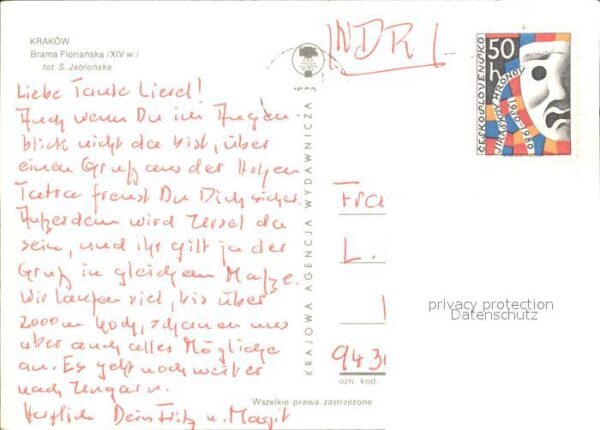 KRAKÓW
Brama Floriańska /XIV w./
fot. S. Jabłońska
Liebe Tante Liesel!
Auch wenn Du im Augen-
blick nicht da bist, über
einen Gruß aus der Hohen
Tatra freust Du Dich sicher.
Außerdem wird Ursel da
sein, und ihr gilt ja der
Gruß in gleichem Maße.
Wir laufen viel, bis über
2000 m hoch, schauen uns
aber auch alles Mögliche
an. Es geht noch weiter
nach Ungarn.
Herzlich Dein Fritz u. Margit
KRAJOWA AGENCJA WYDAWNICZA
NDR
ČESKOSLOVENSKO
50 h
JIRÁSKŮV HRONOV
1930-1980
Fra
L.
943
ozn. kod.
Wszelkie prawa zastrzeżone
privacy protection
Datenschutz